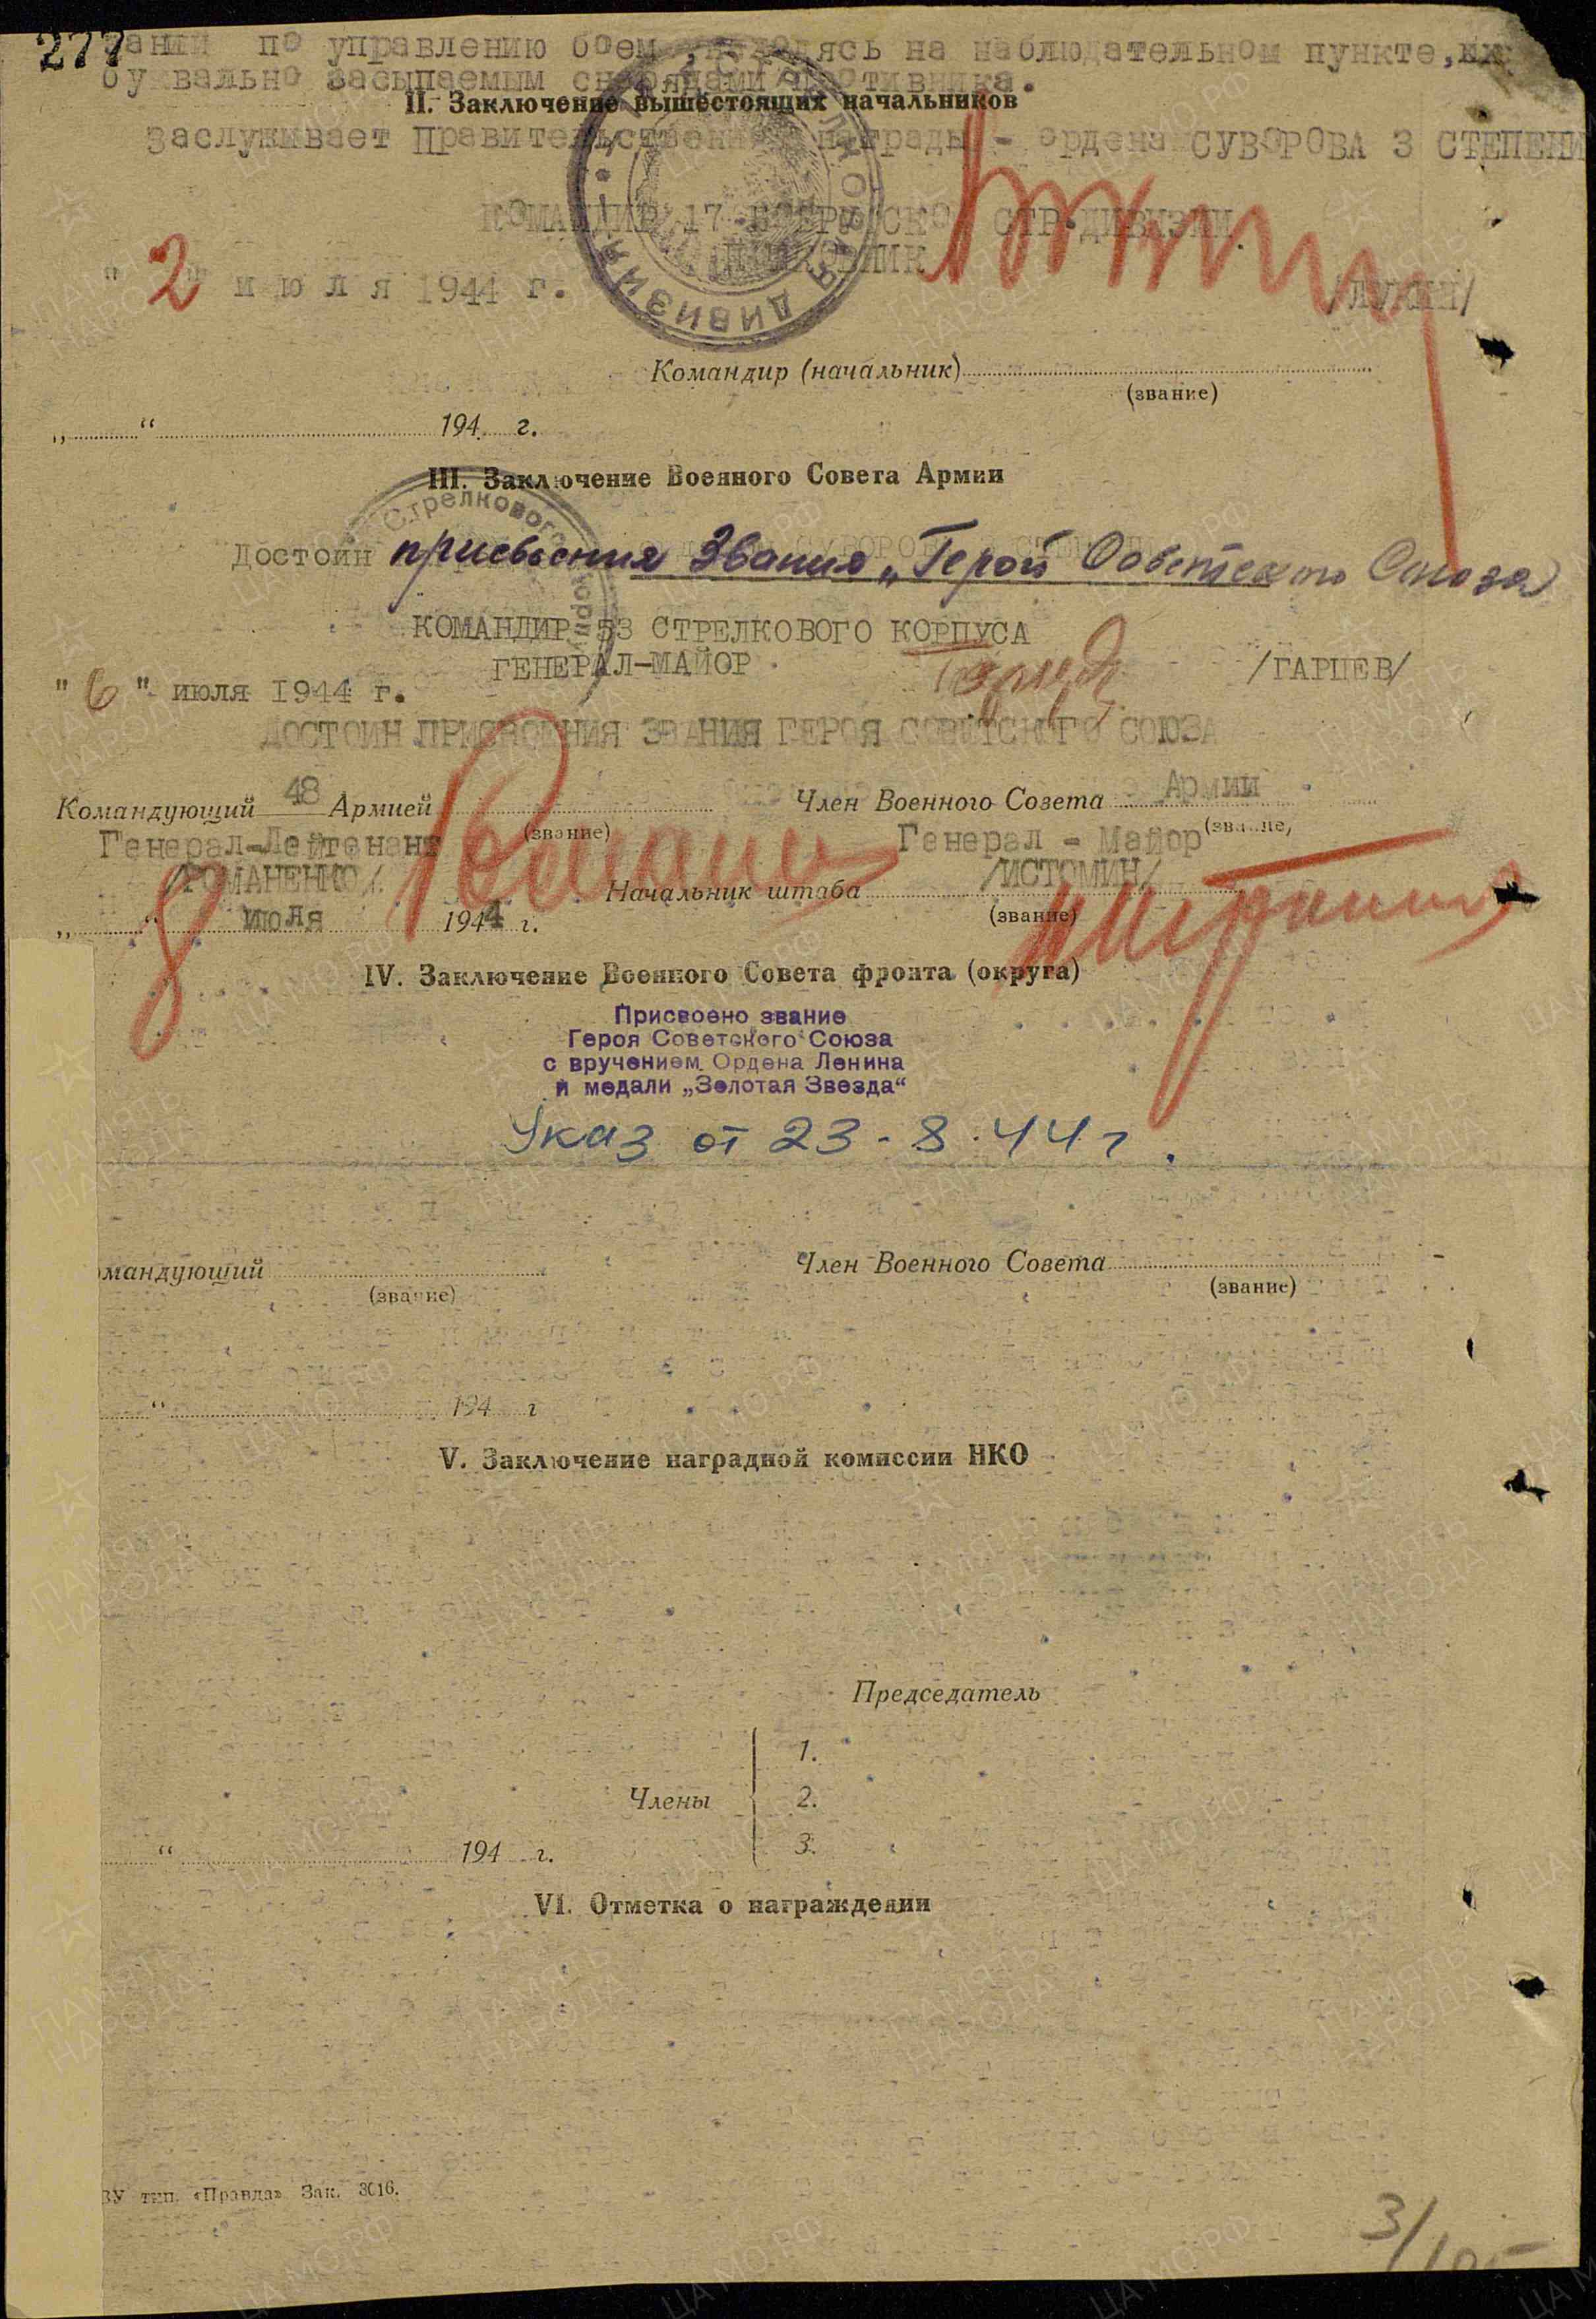 277
по управлению боем, находясь на наблюдательном пункте,
буквально засыпаемым снарядами противника.
II. Заключение вышестоящих начальников
Заслуживает Правительственной награды - ордена СУВОРОВА 3 СТЕПЕНИ
КОМАНДИР 17 СТР.ДИВИЗИИ
ПОЛКОВНИК
" 2 " июля 1944 г.
ДИВИЗИЯ
Командир (начальник)
(звание)
„ “ 194 г.
III. Заключение Военного Совета Армии
Стрелкового
Достоин присвоения Звания „Герой Советского Союза
КОМАНДИР 53 СТРЕЛКОВОГО КОРПУСА
ГЕНЕРАЛ-МАЙОР /ГАРЦЕВ/
" 6 " июля 1944 г.
ДОСТОИН ПРИСВОЕНИЯ ЗВАНИЯ ГЕРОЯ СОВЕТСКОГО СОЮЗА
Командующий 48 Армией Член Военного Совета Армии
(звание) (звание)
Генерал-Лейтенант Генерал - Майор
/РОМАНЕНКО/ Начальник штаба /ИСТОМИН/
(звание)
„ 8 “ июля 1944 г.
IV. Заключение Военного Совета фронта (округа)
Присвоено звание
Героя Советского Союза
с вручением Ордена Ленина
и медали „Золотая Звезда“
Указ от 23-8.44 г.
омандующий Член Военного Совета
(звание) (звание)
“ 194 г
V. Заключение наградной комиссии НКО
Председатель
1.
Члены 2.
3.
“ 194 г.
VI. Отметка о награждении
ВУ тип. «Правда» Зак. 3016.